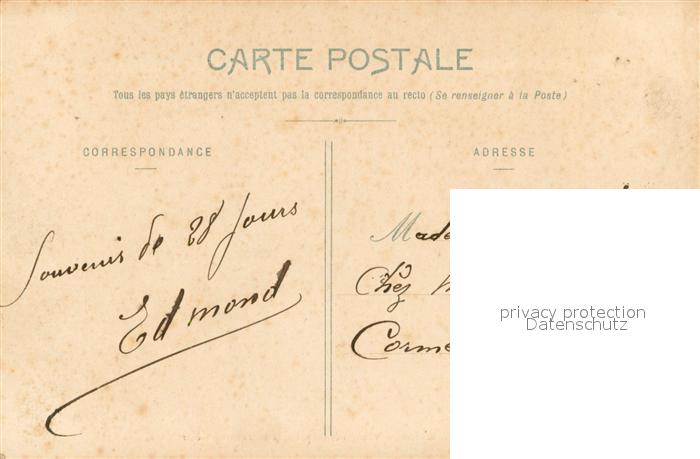 CARTE POSTALE
Tous les pays étrangers n'acceptent pas la correspondance au recto (Se renseigner à la Poste)
CORRESPONDANCE
Souvenir de 28 jours
Edmond
ADRESSE
Chez
privacy protection
Datenschutz